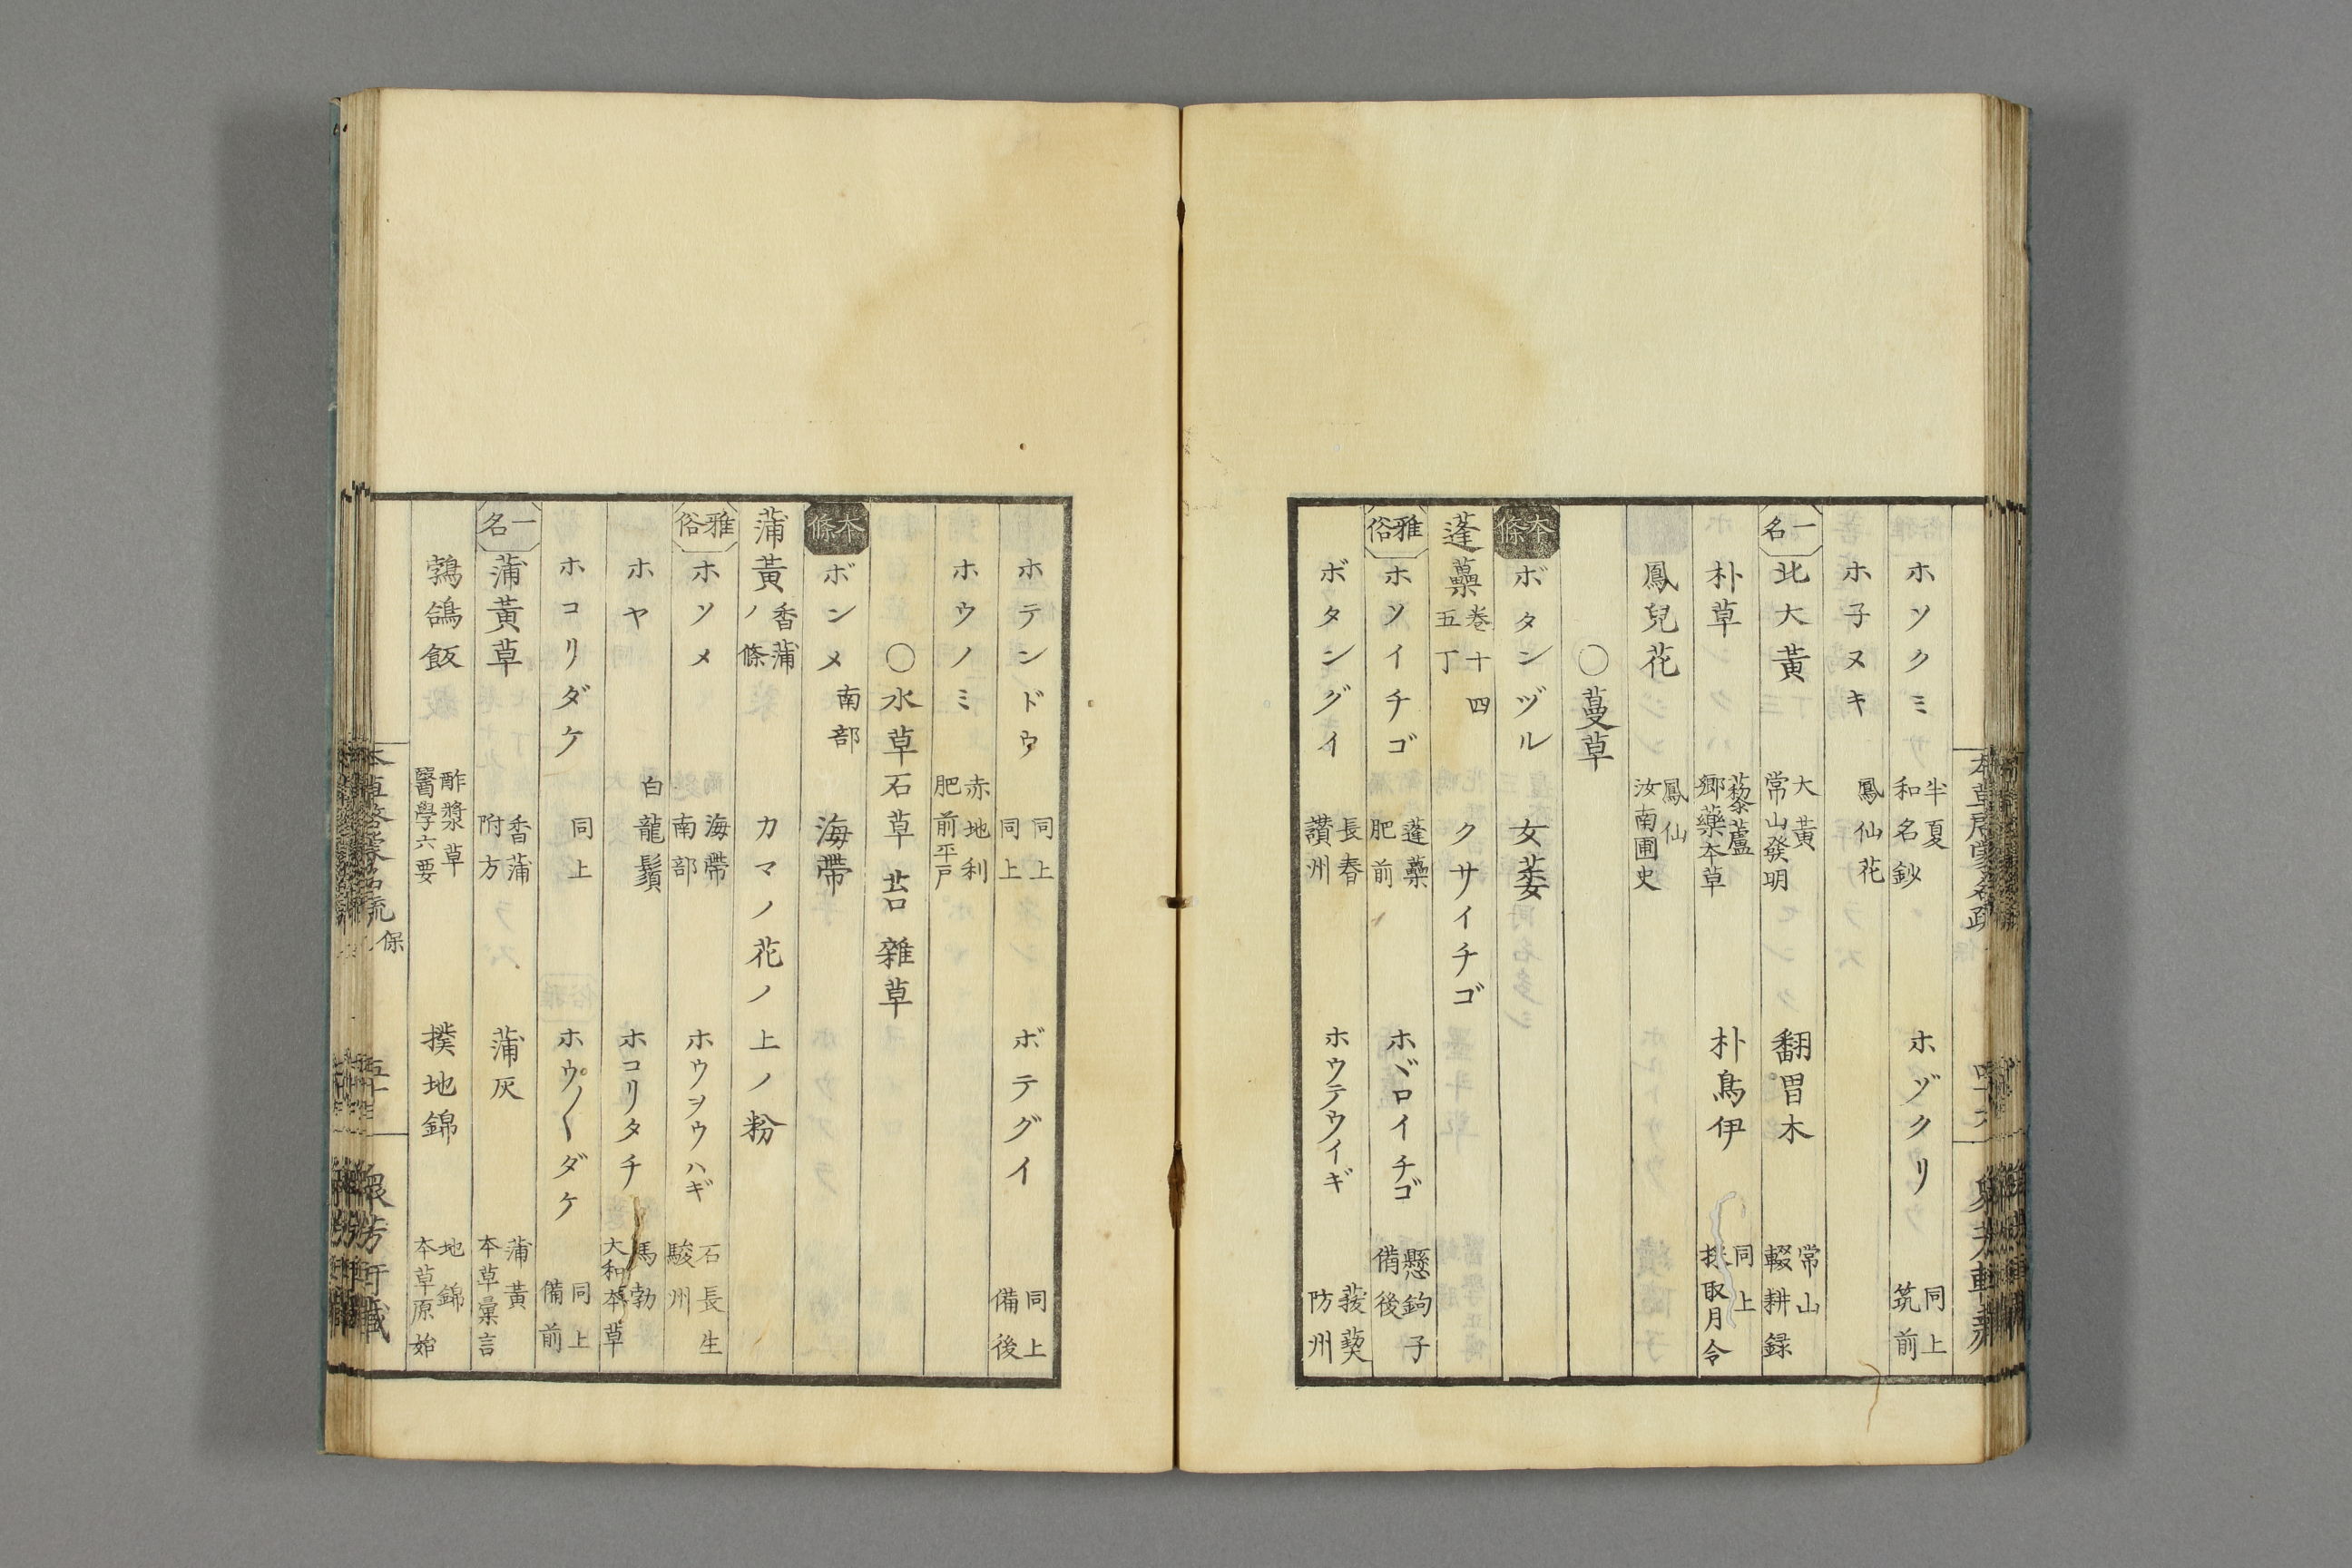 ホソクミ 半夏 和名鈔 ホゾクリ 同上 筑前
ホ子ヌキ 鳳仙花
一名 北大黃 大黃 常山發明 翻胃木 常山 輟耕録
朴草 藜蘆 郷藥本草 朴鳥伊 同上 採取月令
鳳兒花 鳳仙 汝南圃史
〇蔓草
本條 ボタンヅル 女萎
蓬虆 卷十四 五丁 クサイチゴ
雅俗 ホソイチゴ 蓬虆 肥前 ホヾロイチゴ 懸鉤子 備後
ボタングイ 長春 讃州 ホウテウイギ 菝葜 防州
ホテンドウ 同上 同上 ボテグイ 同上 備後
ホウノミ 赤地利 肥前平戸
〇水草石草 苔 雜草
本條 ボンメ 南部 海帶
蒲黃 香蒲ノ條 カマノ花ノ上ノ粉
雅俗 ホソメ 海帶 南部 ホウヲウハギ 石長生 駿州
ホヤ 白龍鬚 ホコリタチ 馬勃 大和本草
ホコリダケ 同上 ホウ〳〵ダケ 同上 備前
一名 蒲黃草 香蒲 附方 蒲灰 蒲黃 本草彙言
鵓鴿飯 酢漿草 醫學六要 撲地錦 地錦 本草原始
保
五十